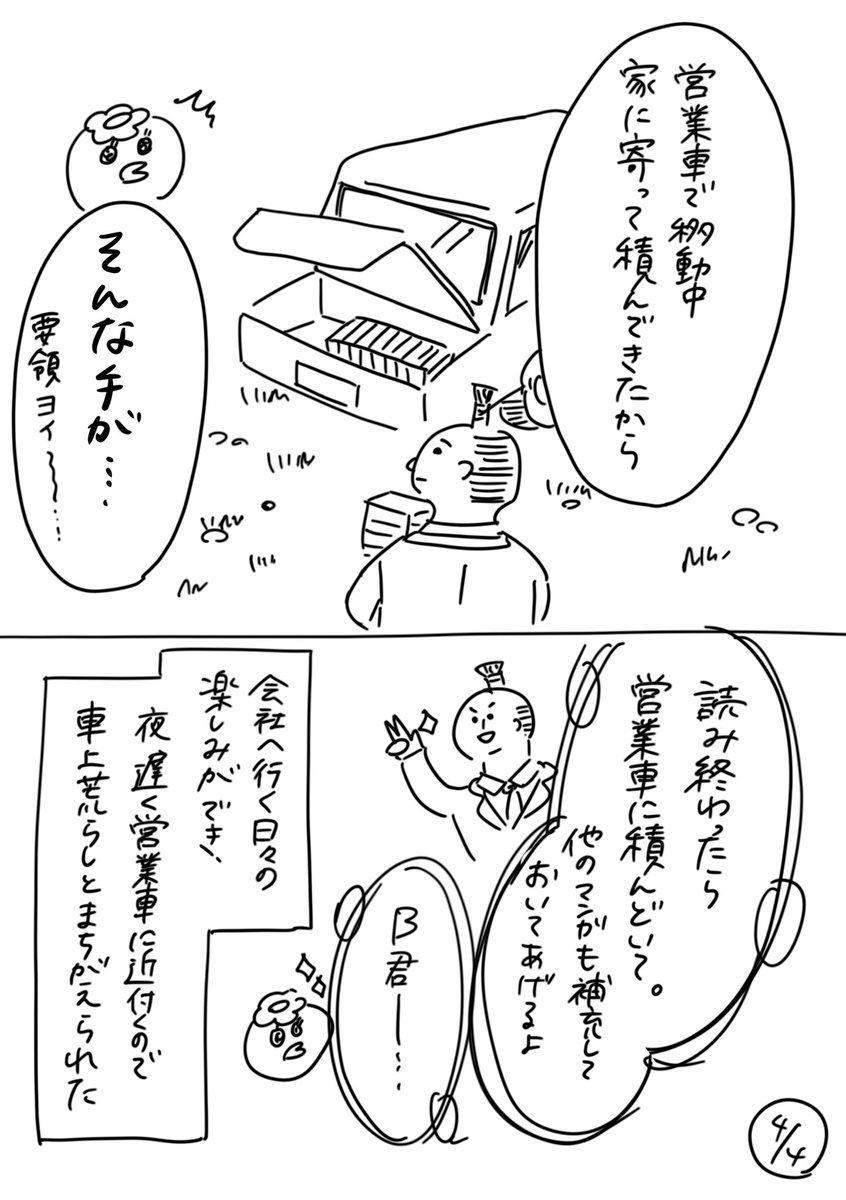 営業車で移動中
家に寄って積んできたから
そんな手が…
要領ヨイ〜〜…
読み終わったら
営業車に積んどいて。
他のマンガも補充して
おいてあげるよ
B君ー…
会社へ行く日々の
楽しみができ、
夜遅く営業車に近付くので
車上荒らしとまちがえられた
4/4